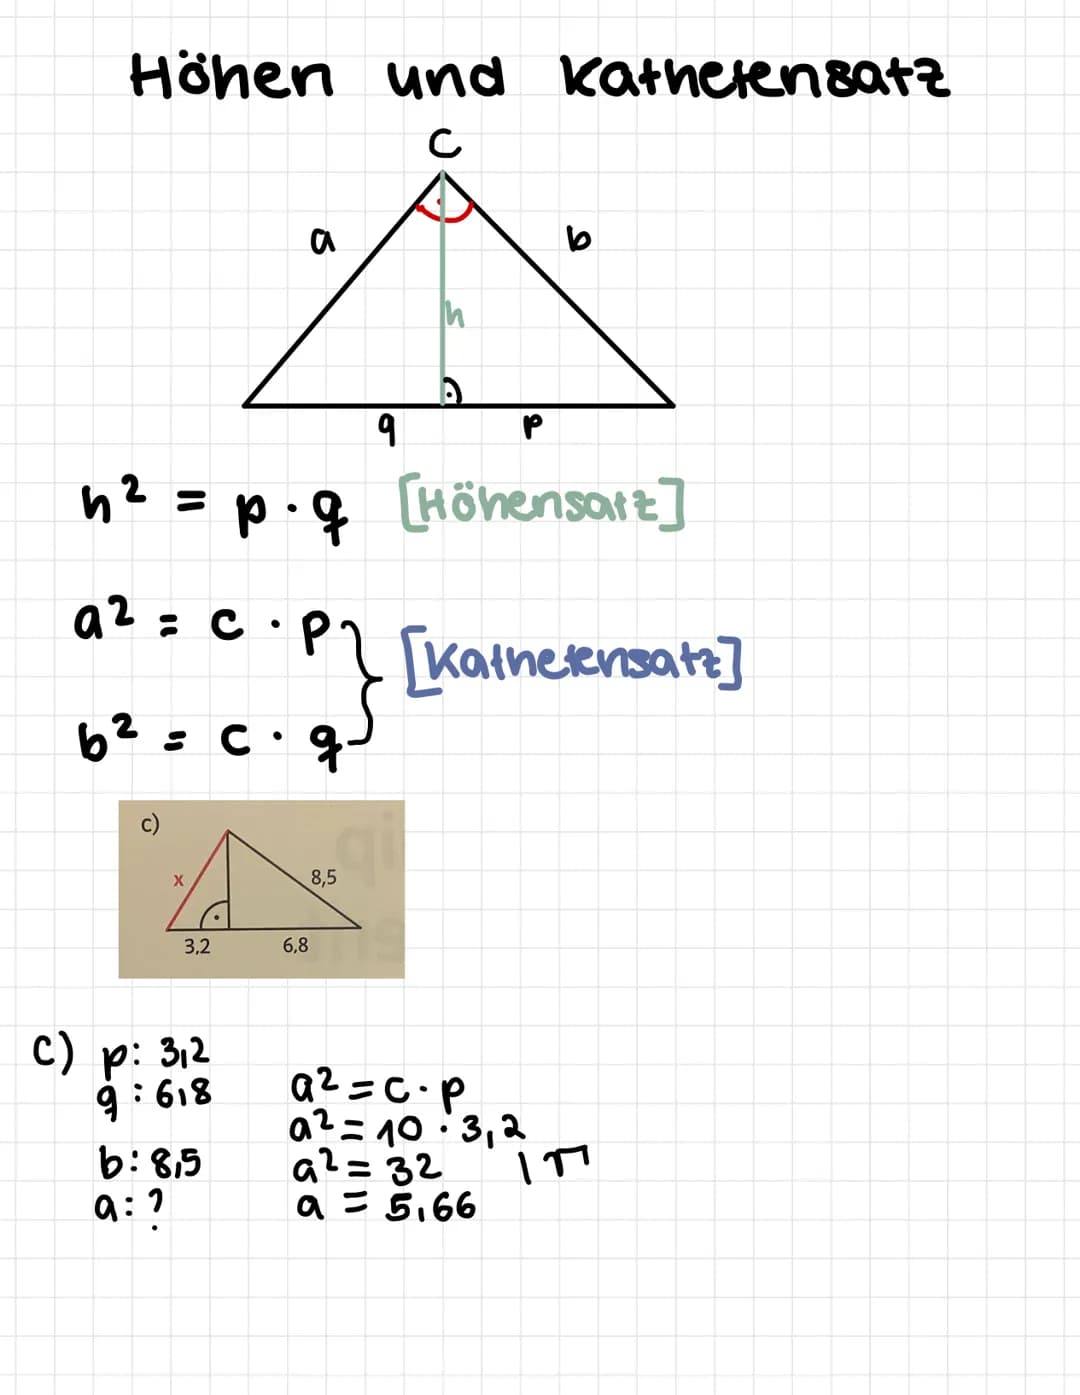 Höhen und Kathetensatz
C
a
b
h
q
p
h² = p · q [Höhensatz]
a² = c · p
[Kathetensatz]
b² = c · q
c)
x
8,5
3,2
6,8
c) p: 3,2
q: 6,8
b: 8,5
a: ?
a² = c · p
a² = 10 · 3,2
a² = 32 | √
a = 5,66